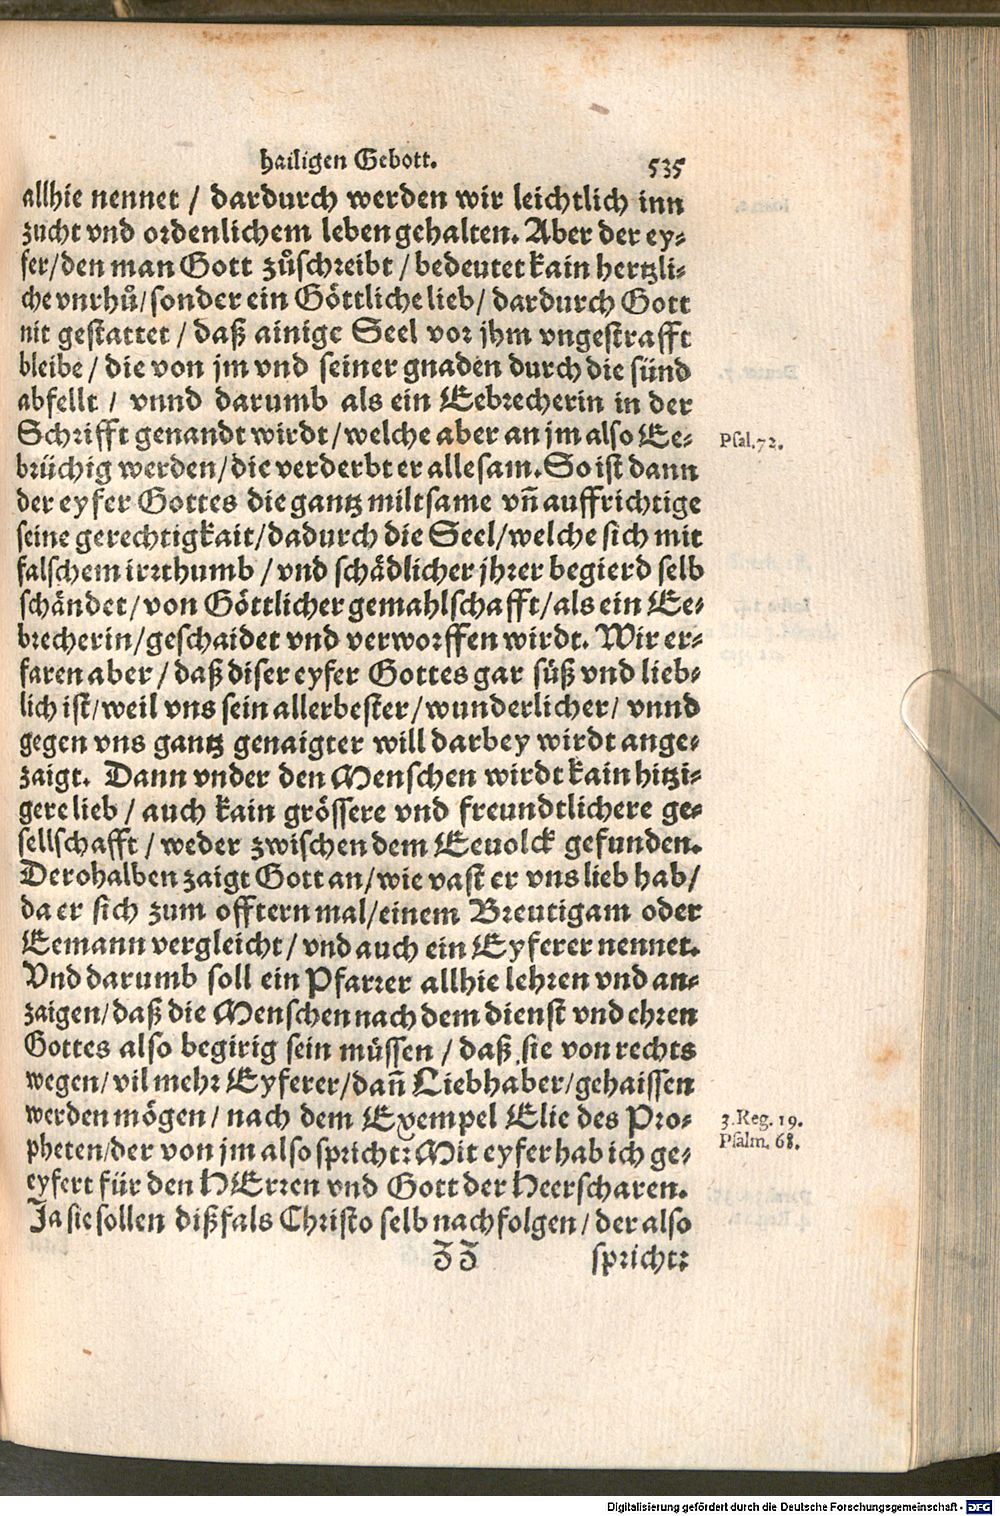 hailigen Gebott. 535
allhie nennet / dardurch werden wir leichtlich inn
zucht vnd ordenlichem leben gehalten. Aber der ey⸗
fer/den man Gott zůschreibt / bedeutet kain hertzli⸗
che vnrhů/sonder ein Göttliche lieb/ dardurch Gott
nit gestattet / daß ainige Seel vor jhm vngestrafft
bleibe / die von jm vnd seiner gnaden durch die sünd
abfellt / vnnd darumb als ein Eebrecherin in der
Schrifft genandt wirdt/welche aber an jm also Ee⸗
Psal.72.
brüchig werden/die verderbt er alle sam. So ist dann
der eyfer Gottes die gantz miltsame vñ auffrichtige
seine gerechtigkait/dadurch die Seel/welche sich mit
falschem irrthumb / vnd schädlicher jhrer begierd selb
schändet/von Göttlicher gemahlschafft/als ein Ee⸗
brecherin/geschaidet vnd verworffen wirdt. Wir er⸗
faren aber / daß diser eyfer Gottes gar süß vnd lieb⸗
lich ist/weil vns sein allerbester/wunderlicher/ vnnd
gegen vns gantz genaigter will darbey wirdt ange⸗
zaigt. Dann vnder den Menschen wirdt kain hitzi⸗
gere lieb / auch kain grössere vnd freundtlichere ge⸗
sellschafft / weder zwischen dem Eeuolck gefunden.
Derohalben zaigt Gott an/wie vast er vns lieb hab/
da er sich zum offtern mal/einem Breutigam oder
Eemann vergleicht/ vnd auch ein Eyferer nennet.
Vnd darumb soll ein Pfarrer allhie lehren vnd an⸗
zaigen/daß die Menschen nach dem dienst vnd ehren
Gottes also begirig sein müssen / daß sie von rechts
wegen/vil mehr Eyferer/dañ Liebhaber/gehaissen
werden mögen/ nach dem Exempel Elie des Pro⸗
3.Reg. 19.
pheten/der von jm also spricht: Mit eyfer hab ich ge⸗
Psalm. 68.
eyfert für den HErren vnd Gott der Heerscharen.
Ja sie sollen dißfals Christo selb nachfolgen/ der also
ZZ spricht:
Digitalisierung gefördert durch die Deutsche Forschungsgemeinschaft - DFG